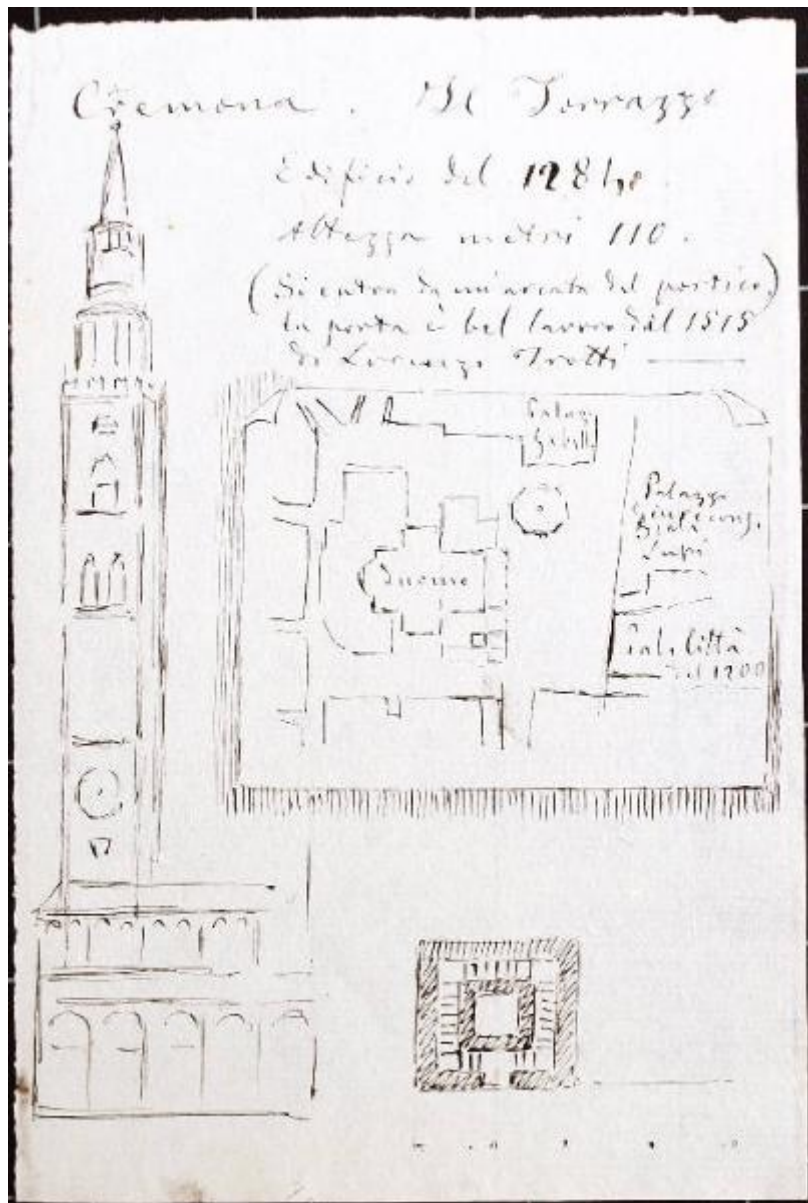 Cremona. Il Torrazzo
Edificio del
Altezza metri 110.
(Si entra da un'arcata del portico)
la porta è bel lavoro del 1515
di Lorenzo Trotti
Palazzo
Duomo
Lupi
Pal. Città
del 1200